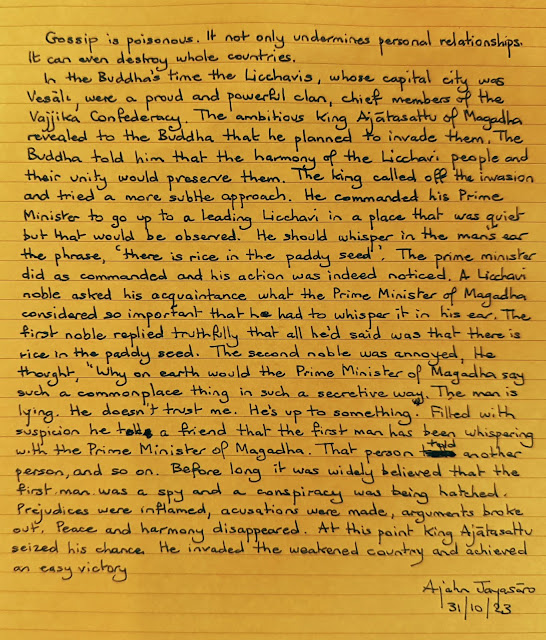 Gossip is poisonous. It not only undermines personal relationships.
It can even destroy whole countries.
In the Buddha's time the Licchavis, whose capital city was
Vesāli, were a proud and powerful clan, chief members of the
Vajjika Confederacy. The ambitious King Ajātasattu of Magadha
revealed to the Buddha that he planned to invade them. The
Buddha told him that the harmony of the Licchavi people and
their unity would preserve them. The king called off the invasion
and tried a more subtle approach. He commanded his Prime
Minister to go up to a leading Licchavi in a place that was quiet
but that would be observed. He should whisper in the man's ear
the phrase, 'there is rice in the paddy seed'. The prime minister
did as commanded and his action was indeed noticed. A Licchavi
noble asked his acquaintance what the Prime Minister of Magadha
considered so important that he had to whisper it in his ear. The
first noble replied truthfully that all he'd said was that there is
rice in the paddy seed. The second noble was annoyed. He
thought, "Why on earth would the Prime Minister of Magadha say
such a commonplace thing in such a secretive way. The man is
lying. He doesn't trust me. He's up to something. Filled with
suspicion he a friend that the first man has been whispering
with the Prime Minister of Magadha. That person told another
person, and so on. Before long it was widely believed that the
first man was a spy and a conspiracy was being hatched.
Prejudices were inflamed, acusations were made, arguments broke
out. Peace and harmony disappeared. At this point King Ajātasattu
seized his chance. He invaded the weakened country and achieved
an easy victory
Ajahn Jayasāro
31/10/23